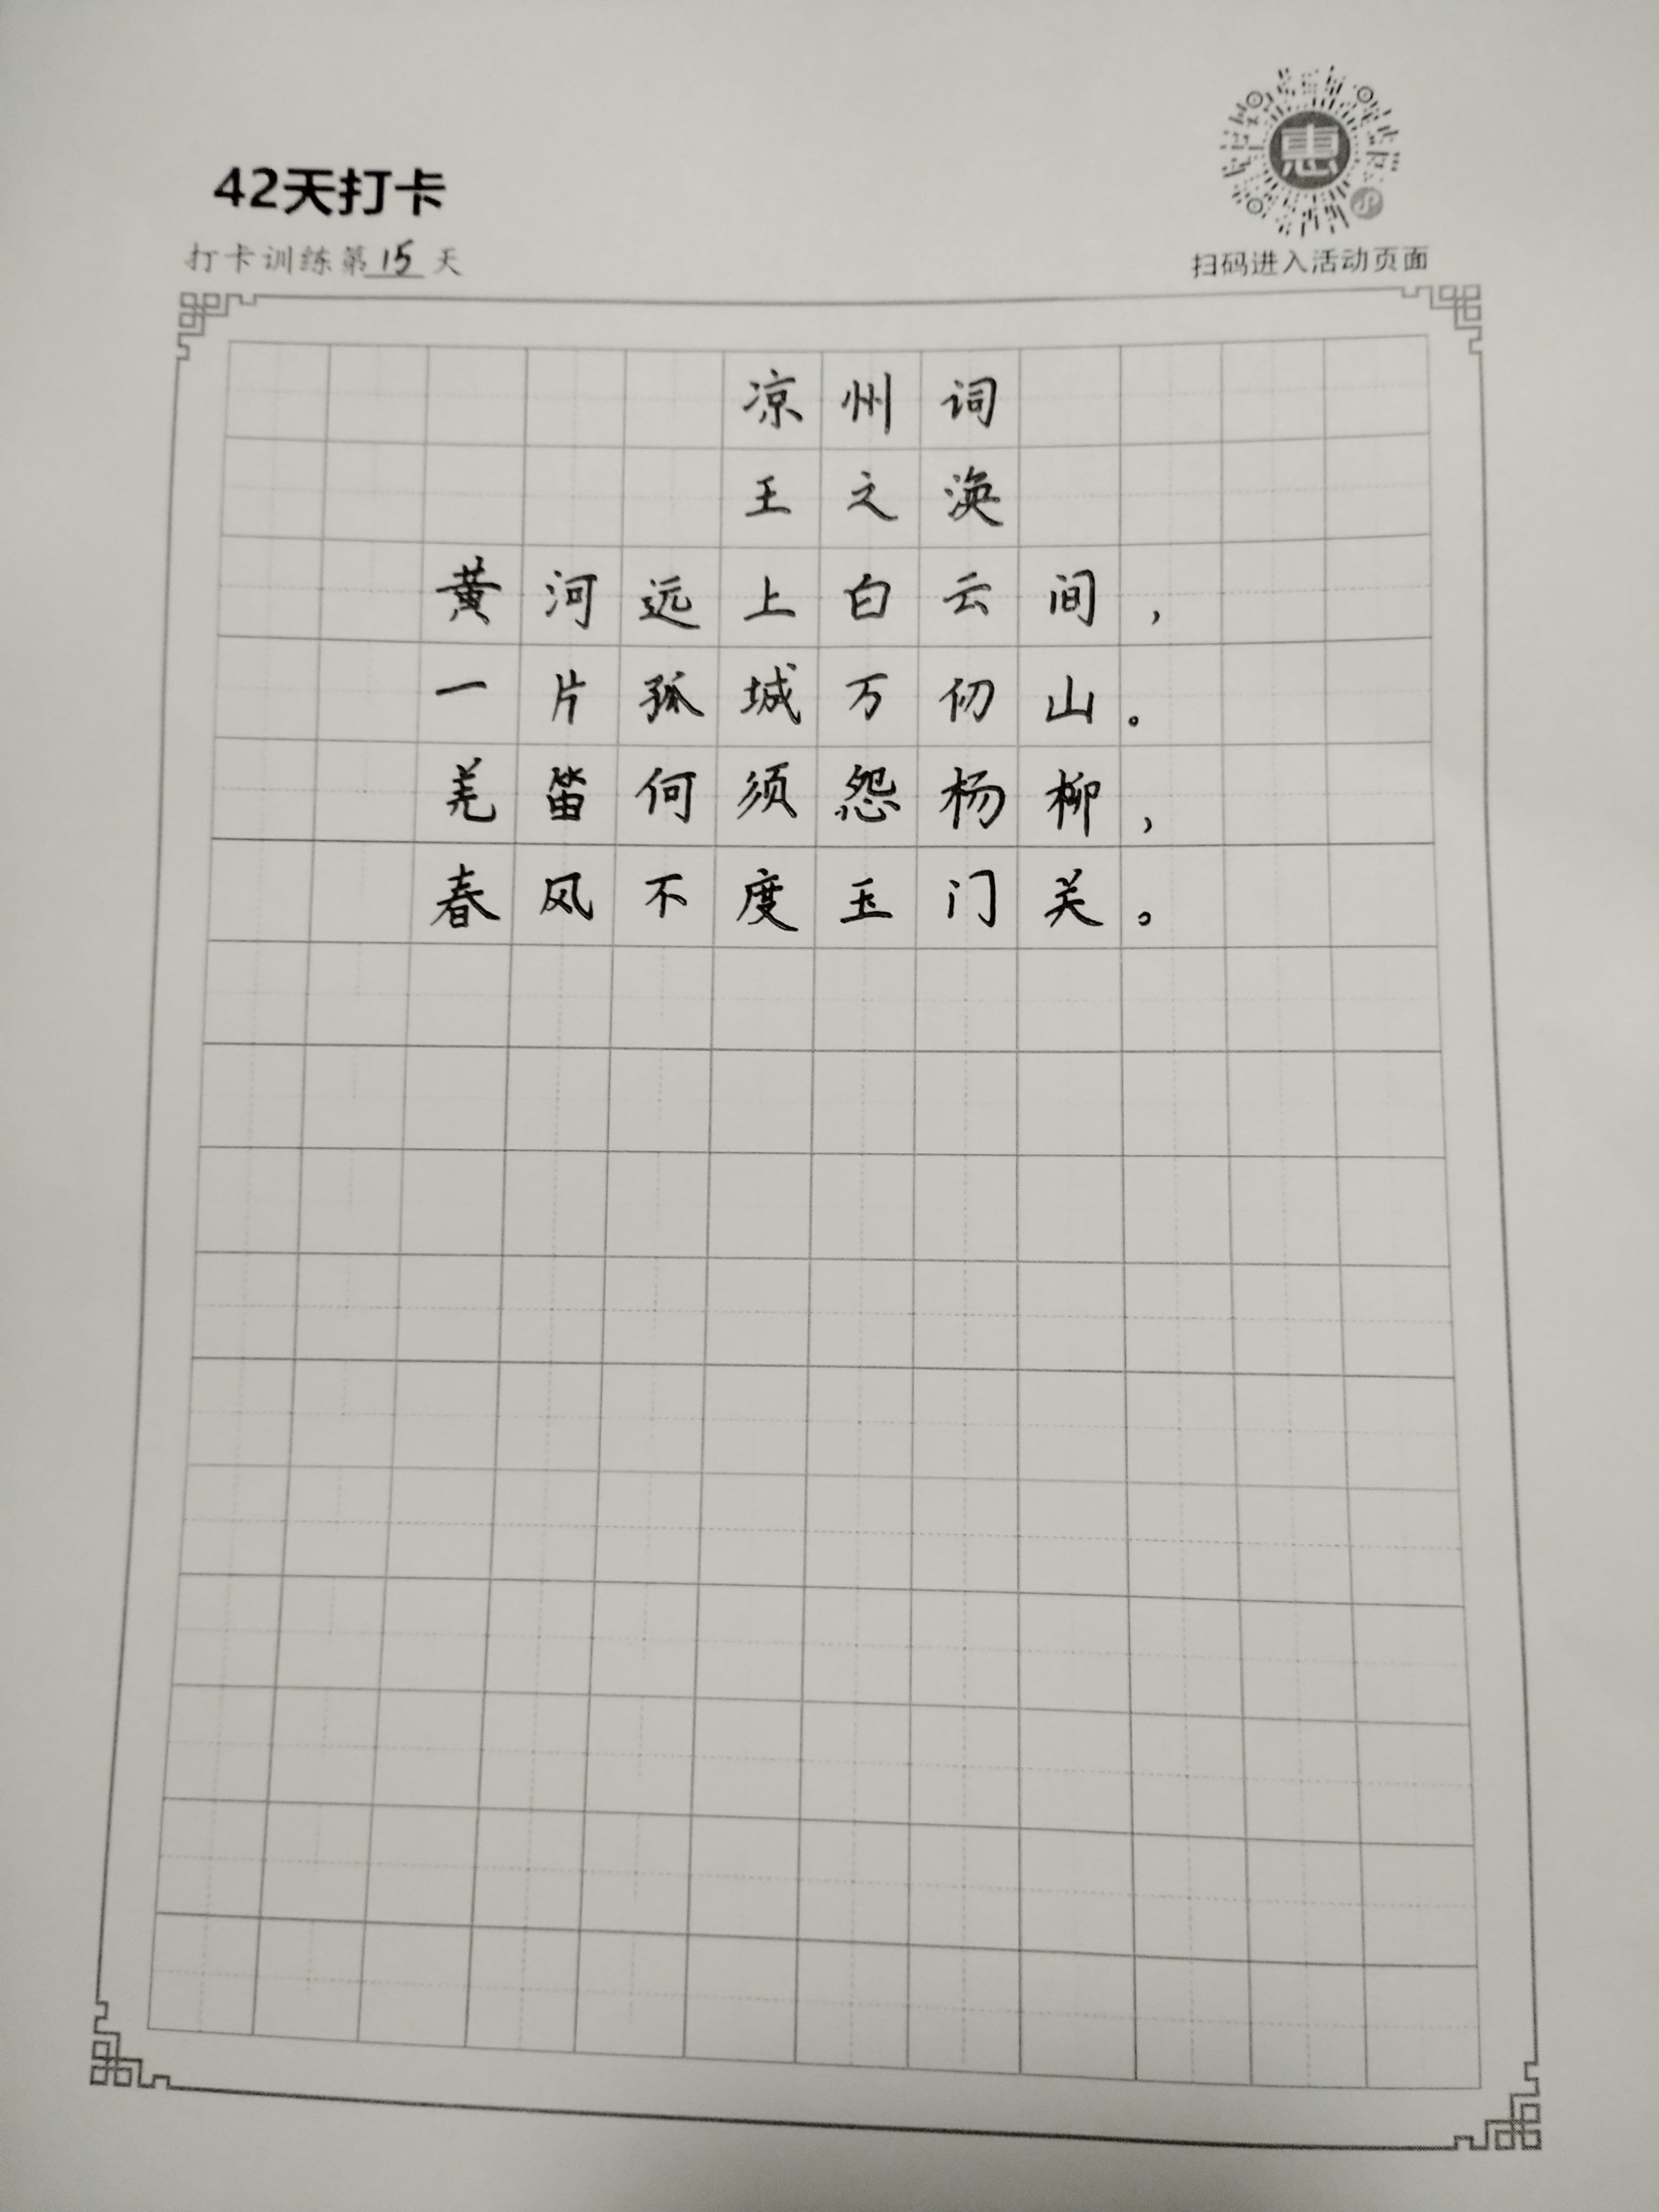 惠
42天打卡
打卡训练第15天
扫码进入活动页面
凉州词
王之涣
黄河远上白云间，
一片孤城万仞山。
羌笛何须怨杨柳，
春风不度玉门关。